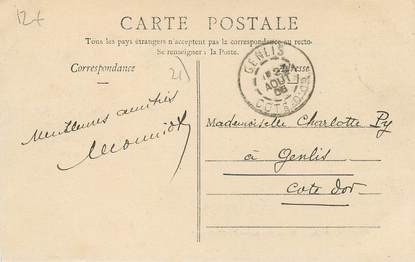 12f
CARTE POSTALE
Tous les pays étrangers n'acceptent pas la correspondance au recto.
Se renseigner à la Poste.
Correspondance
Adresse
GENLIS
AOUT
06
COTE-D'OR
Meilleures amitiés
Mademoiselle Charlotte Py
à Genlis
Cote d'or